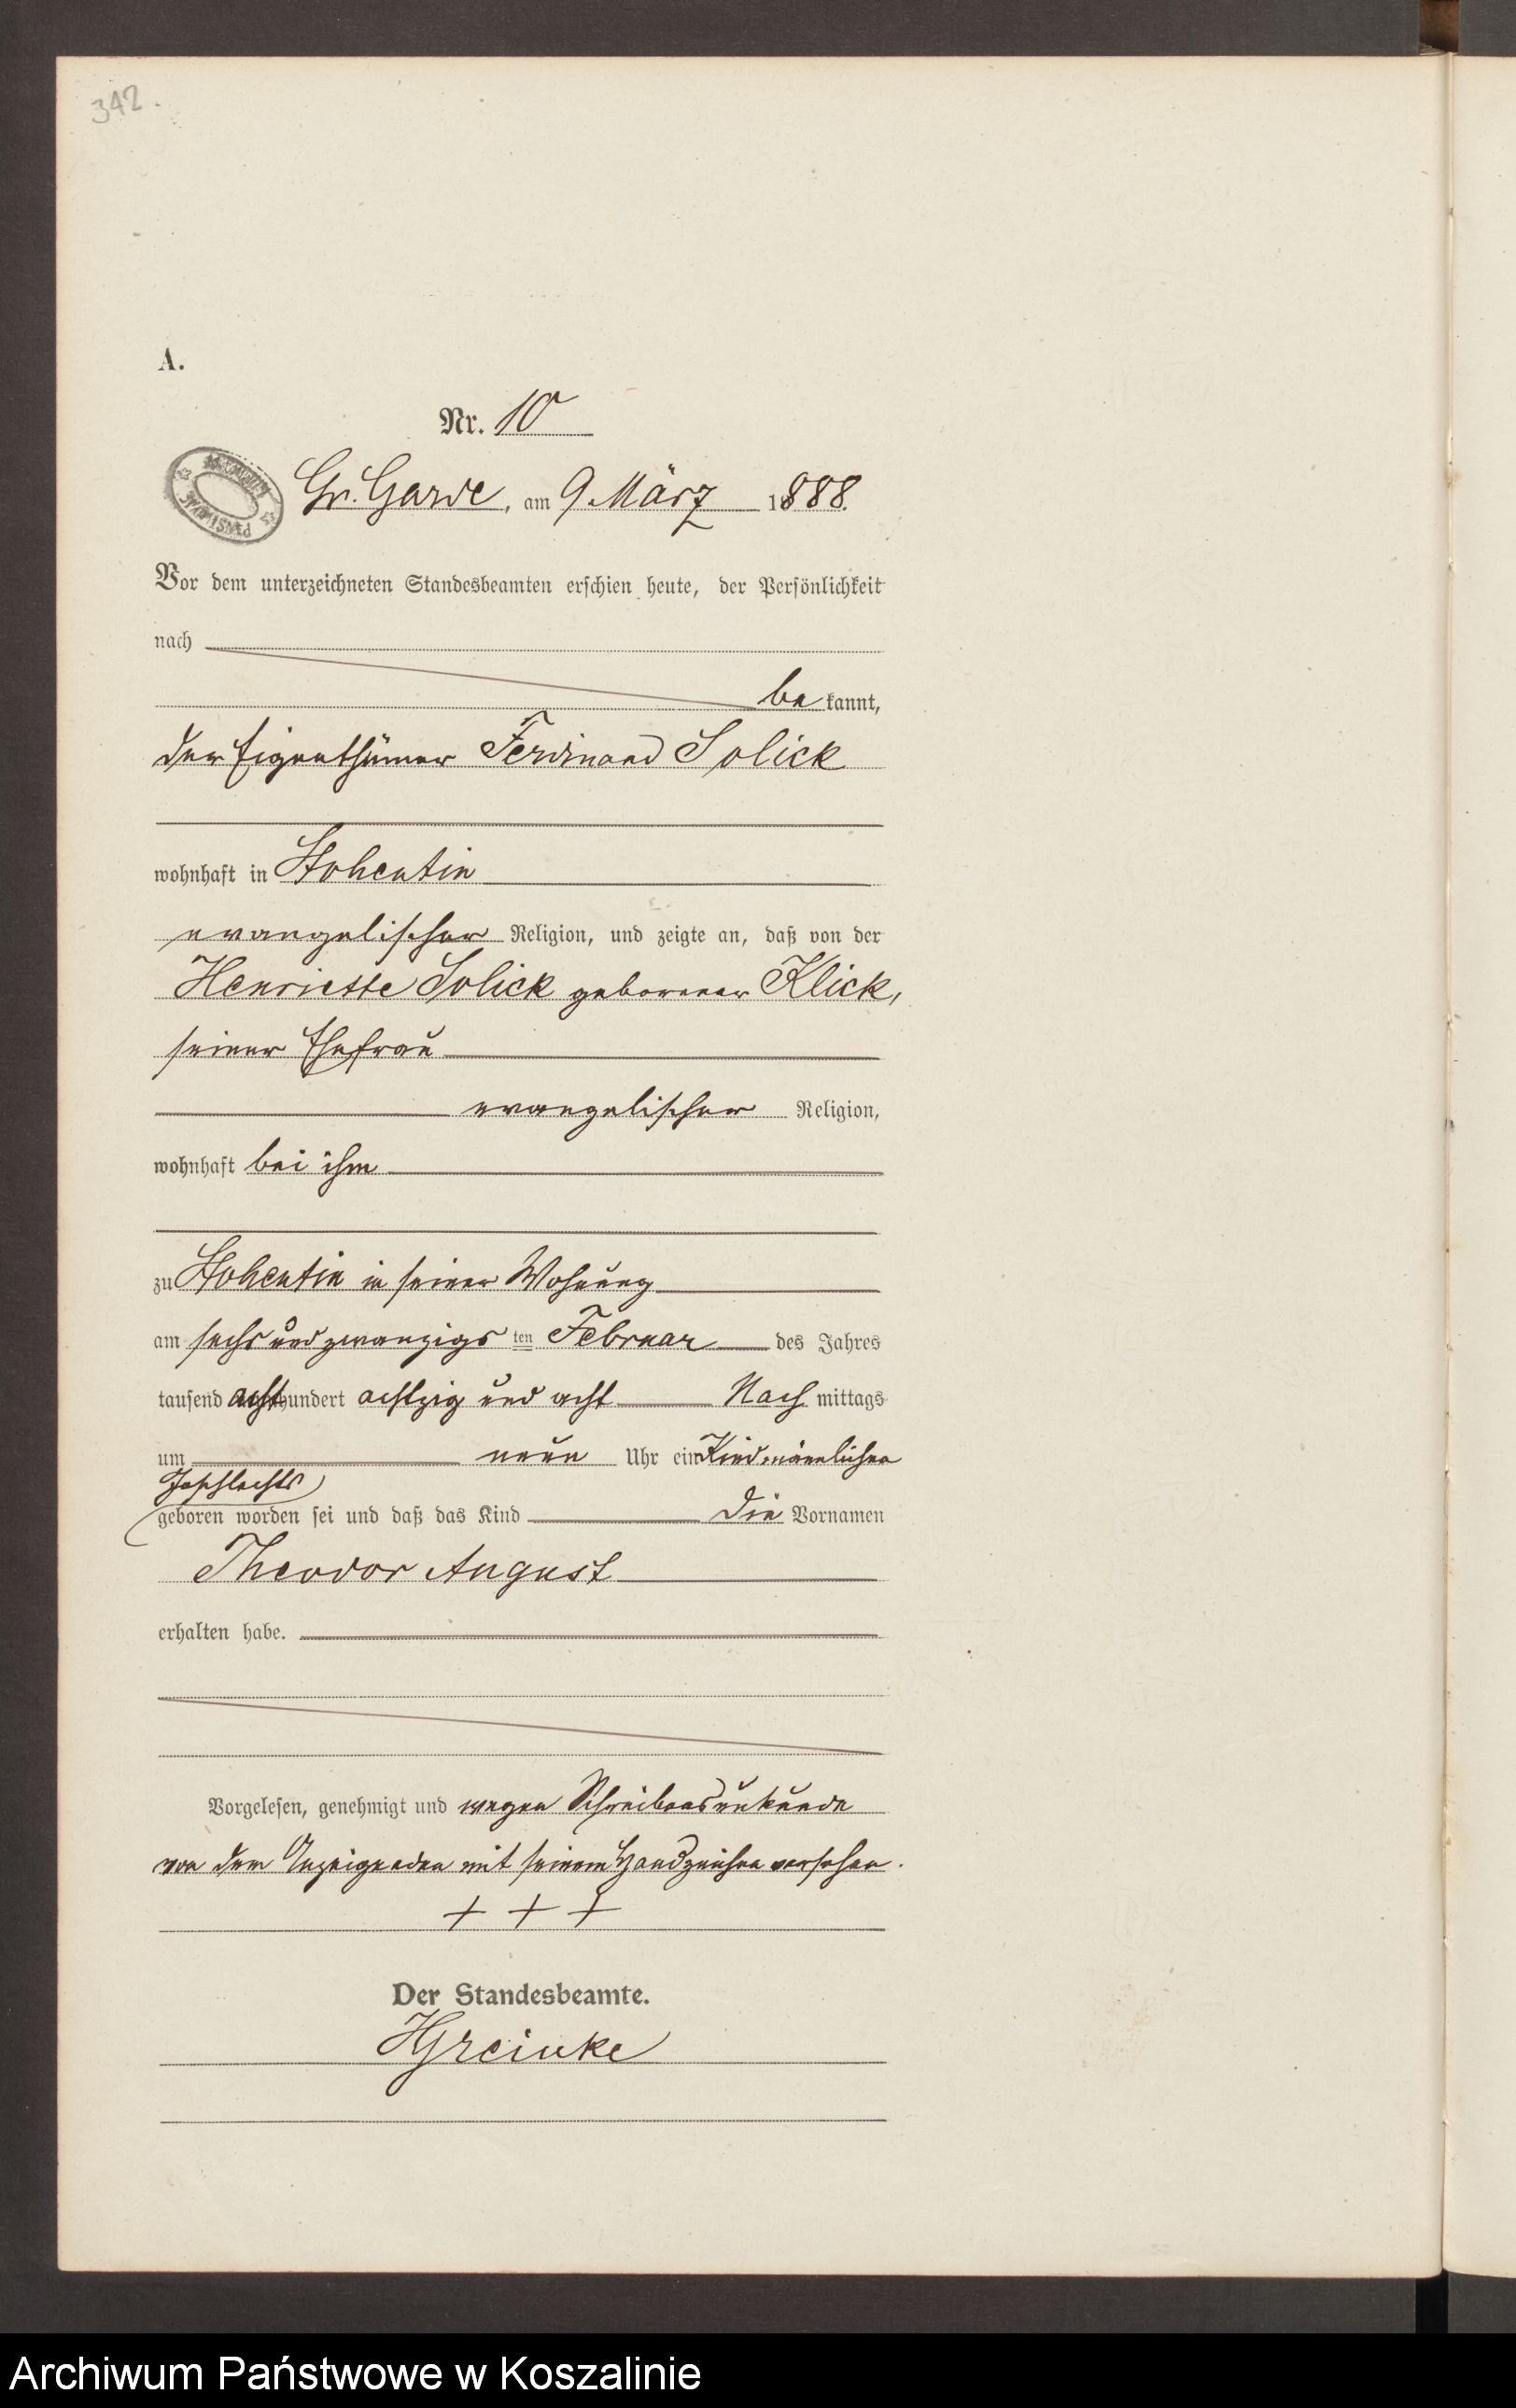 342.
A.
Nr. 10
ARCHIWUM PAŃSTWOWE
Gr. Garde, am 9 März 1888.
Vor dem unterzeichneten Standesbeamten erschien heute, der Persönlichkeit
nach
be kannt,
der Eigenthümer Ferdinand Solick
wohnhaft in Hohentin
evangelischer Religion, und zeigte an, daß von der
Henriette Solick geborener Klick,
seiner Ehefrau
evangelischer Religion,
wohnhaft bei ihm
zu Hohentin in seiner Wohnung
am sechs und zwanzigs ten Februar des Jahres
tausend acht hundert achtzig und acht Nach mittags
um neun Uhr ein Kind männlichen
Geschlechts
geboren worden sei und daß das Kind die Vornamen
Theodor August
erhalten habe.
Vorgelesen, genehmigt und wegen Schreibensunkunde
von dem Anzeigenden mit seinem Handzeichen versehen.
+ + +
Der Standesbeamte.
Archiwum Państwowe w Koszalinie